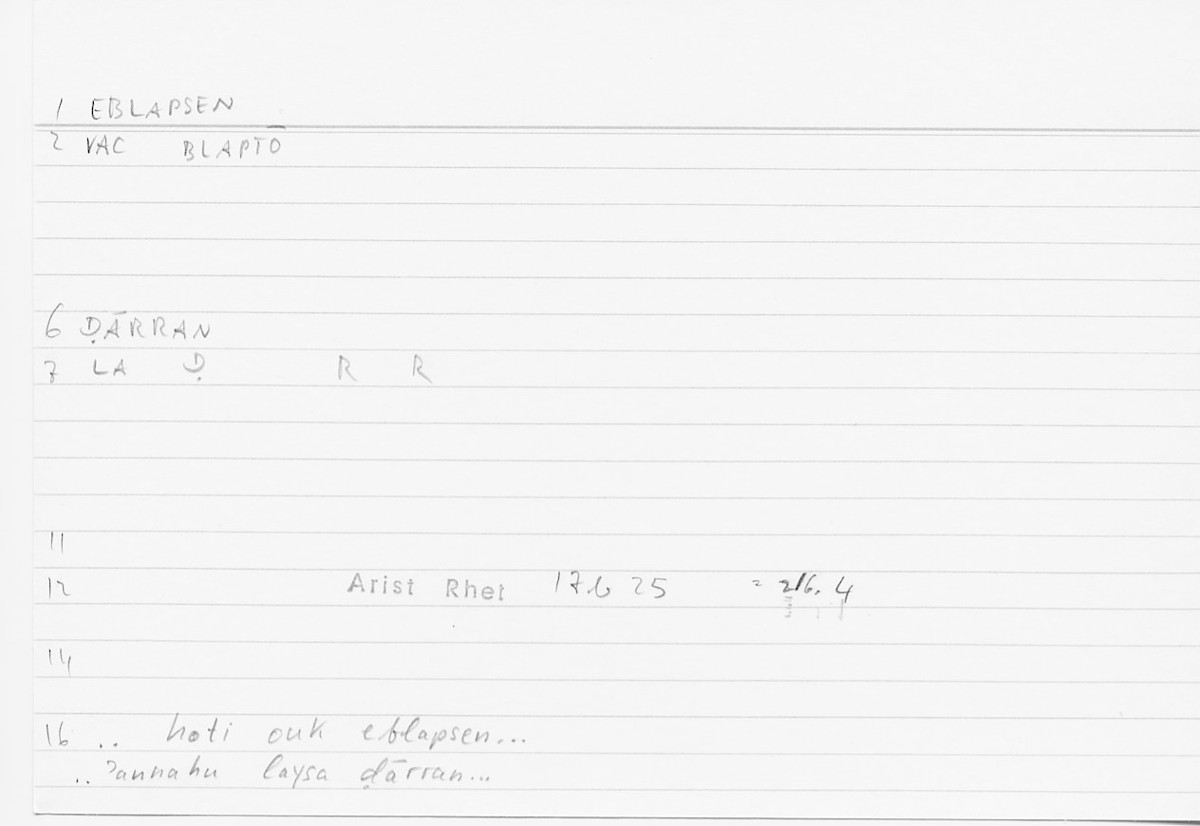 1 EBLAPSEN
2 VAC BLAPTŌ
6 ḌĀRRAN
7 LA Ḍ R R
11
12 Arist Rhet 17b 25 = 216. 4
14
16 .. hoti ouk eblapsen...
.. ʾannahu laysa ḍārran...